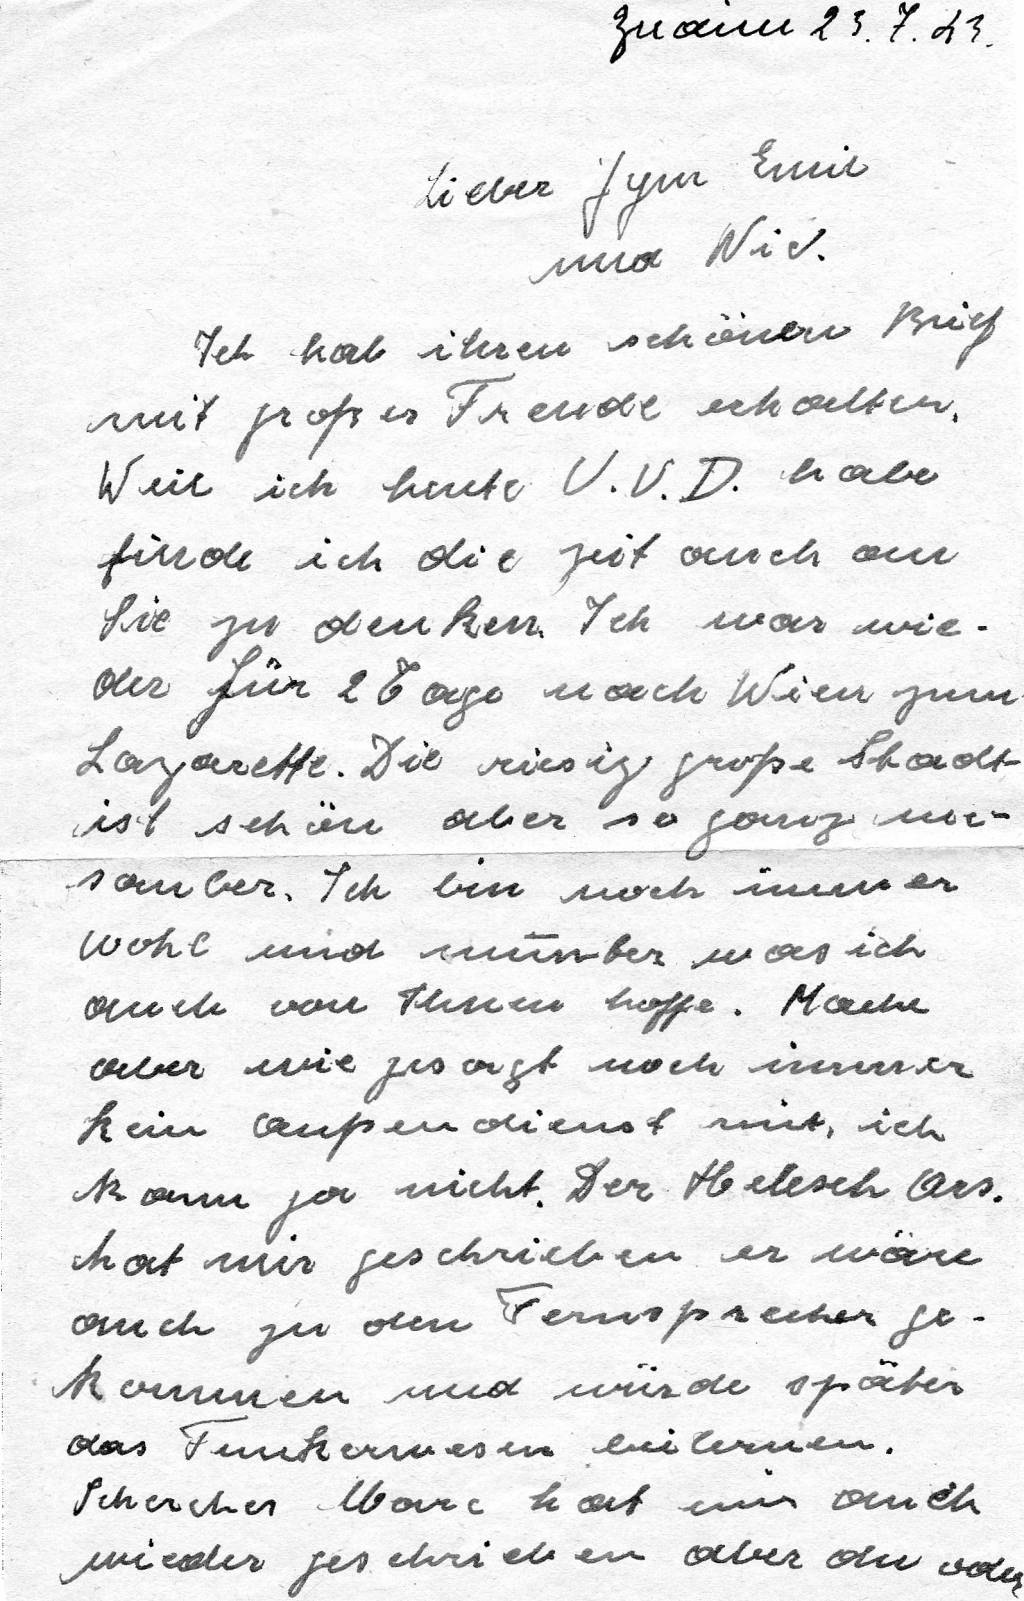 Znaim 23.7.43.
Lieber Jym Emil
und Vic.
Ich hab ihren schönen Brief
mit großer Freude erhalten.
Weil ich heute U.V.D. habe
finde ich die zeit auch an
Sie zu denken. Ich war wie-
der für 2 Tage nach Wien zum
Lazarette. Die riesig große Stadt
ist schön aber so ganz un-
sauber. Ich bin noch immer
wohl und munter was ich
auch von Ihnen hoffe. Mache
aber wie gesagt noch immer
kein außendienst mit, ich
kann ja nicht. Der Helesch Ars.
hat mir geschrieben er wäre
auch zu den Fernsprecher ge-
kommen und würde später
das Funkerwesen beilernen.
Schercher Marc hat mir auch
wieder geschrieben aber du oder